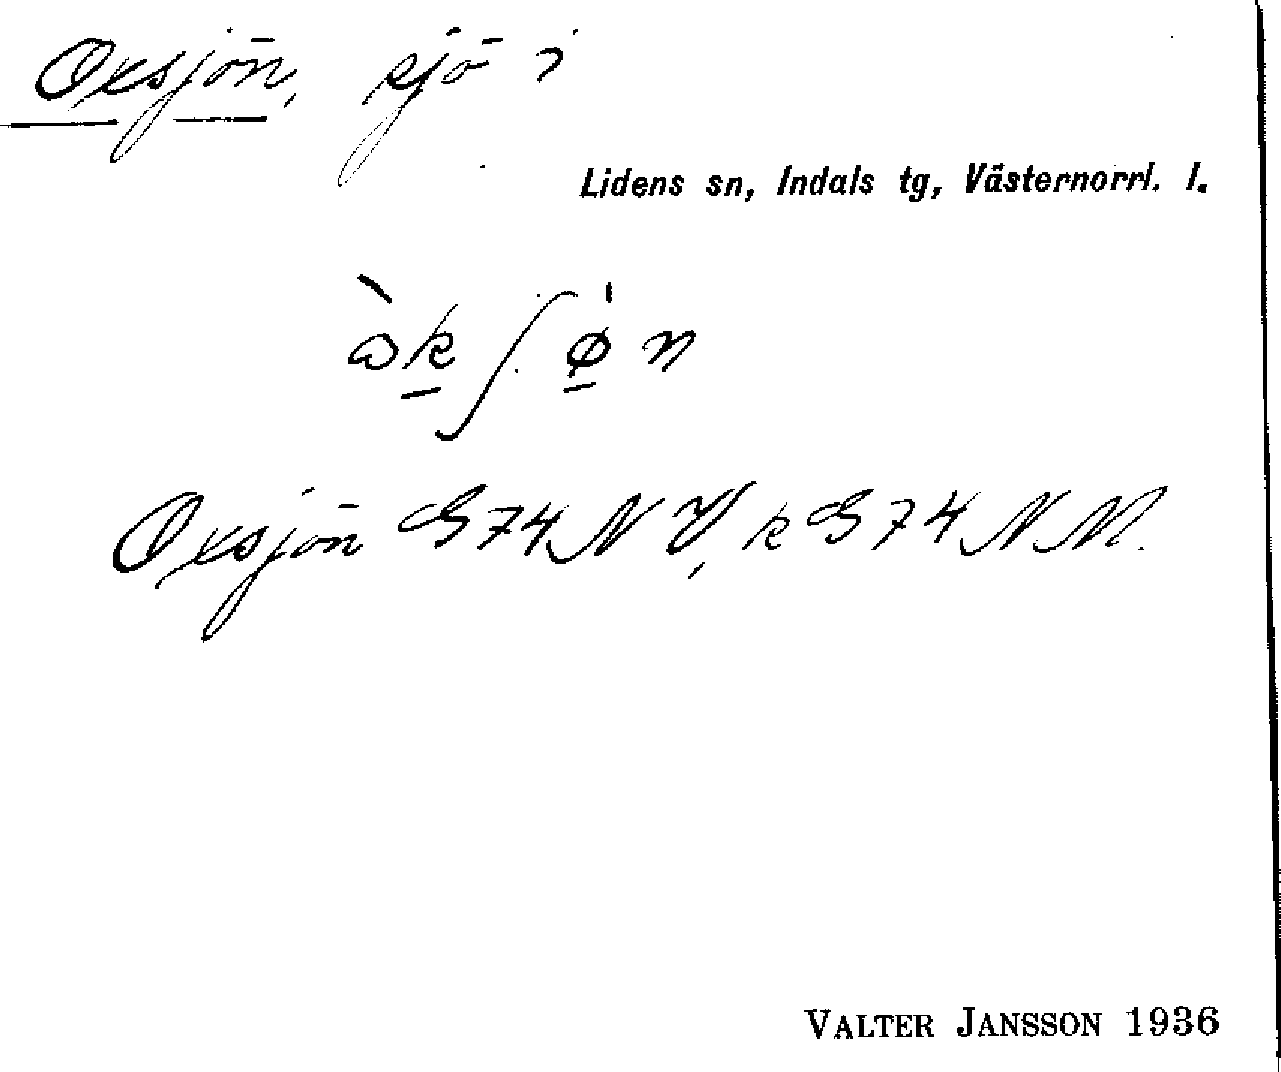 Oxsjön, sjö i
Lidens sn, Indals tg, Västernorrl. l.
Oxsjön G74NV, k G74NM.
VALTER JANSSON 1936